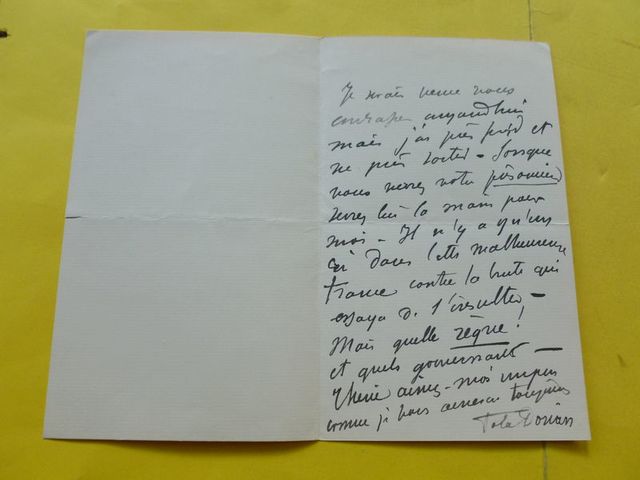 Je serais venue vous
embrasser aujourd'hui
mais j'ai pris froid et
ne puis sortir - Lorsque
vous verrez votre prisonnier
serrez lui la main pour
moi - Il n'y a qu'un
cri dans cette malheureuse
France contre la brute qui
essaya de l'insulter -
Mais quelle règne !
et quels gouvernants -
Chérie aimez-moi un peu
comme je vous aimerai toujours
Tola Dorian